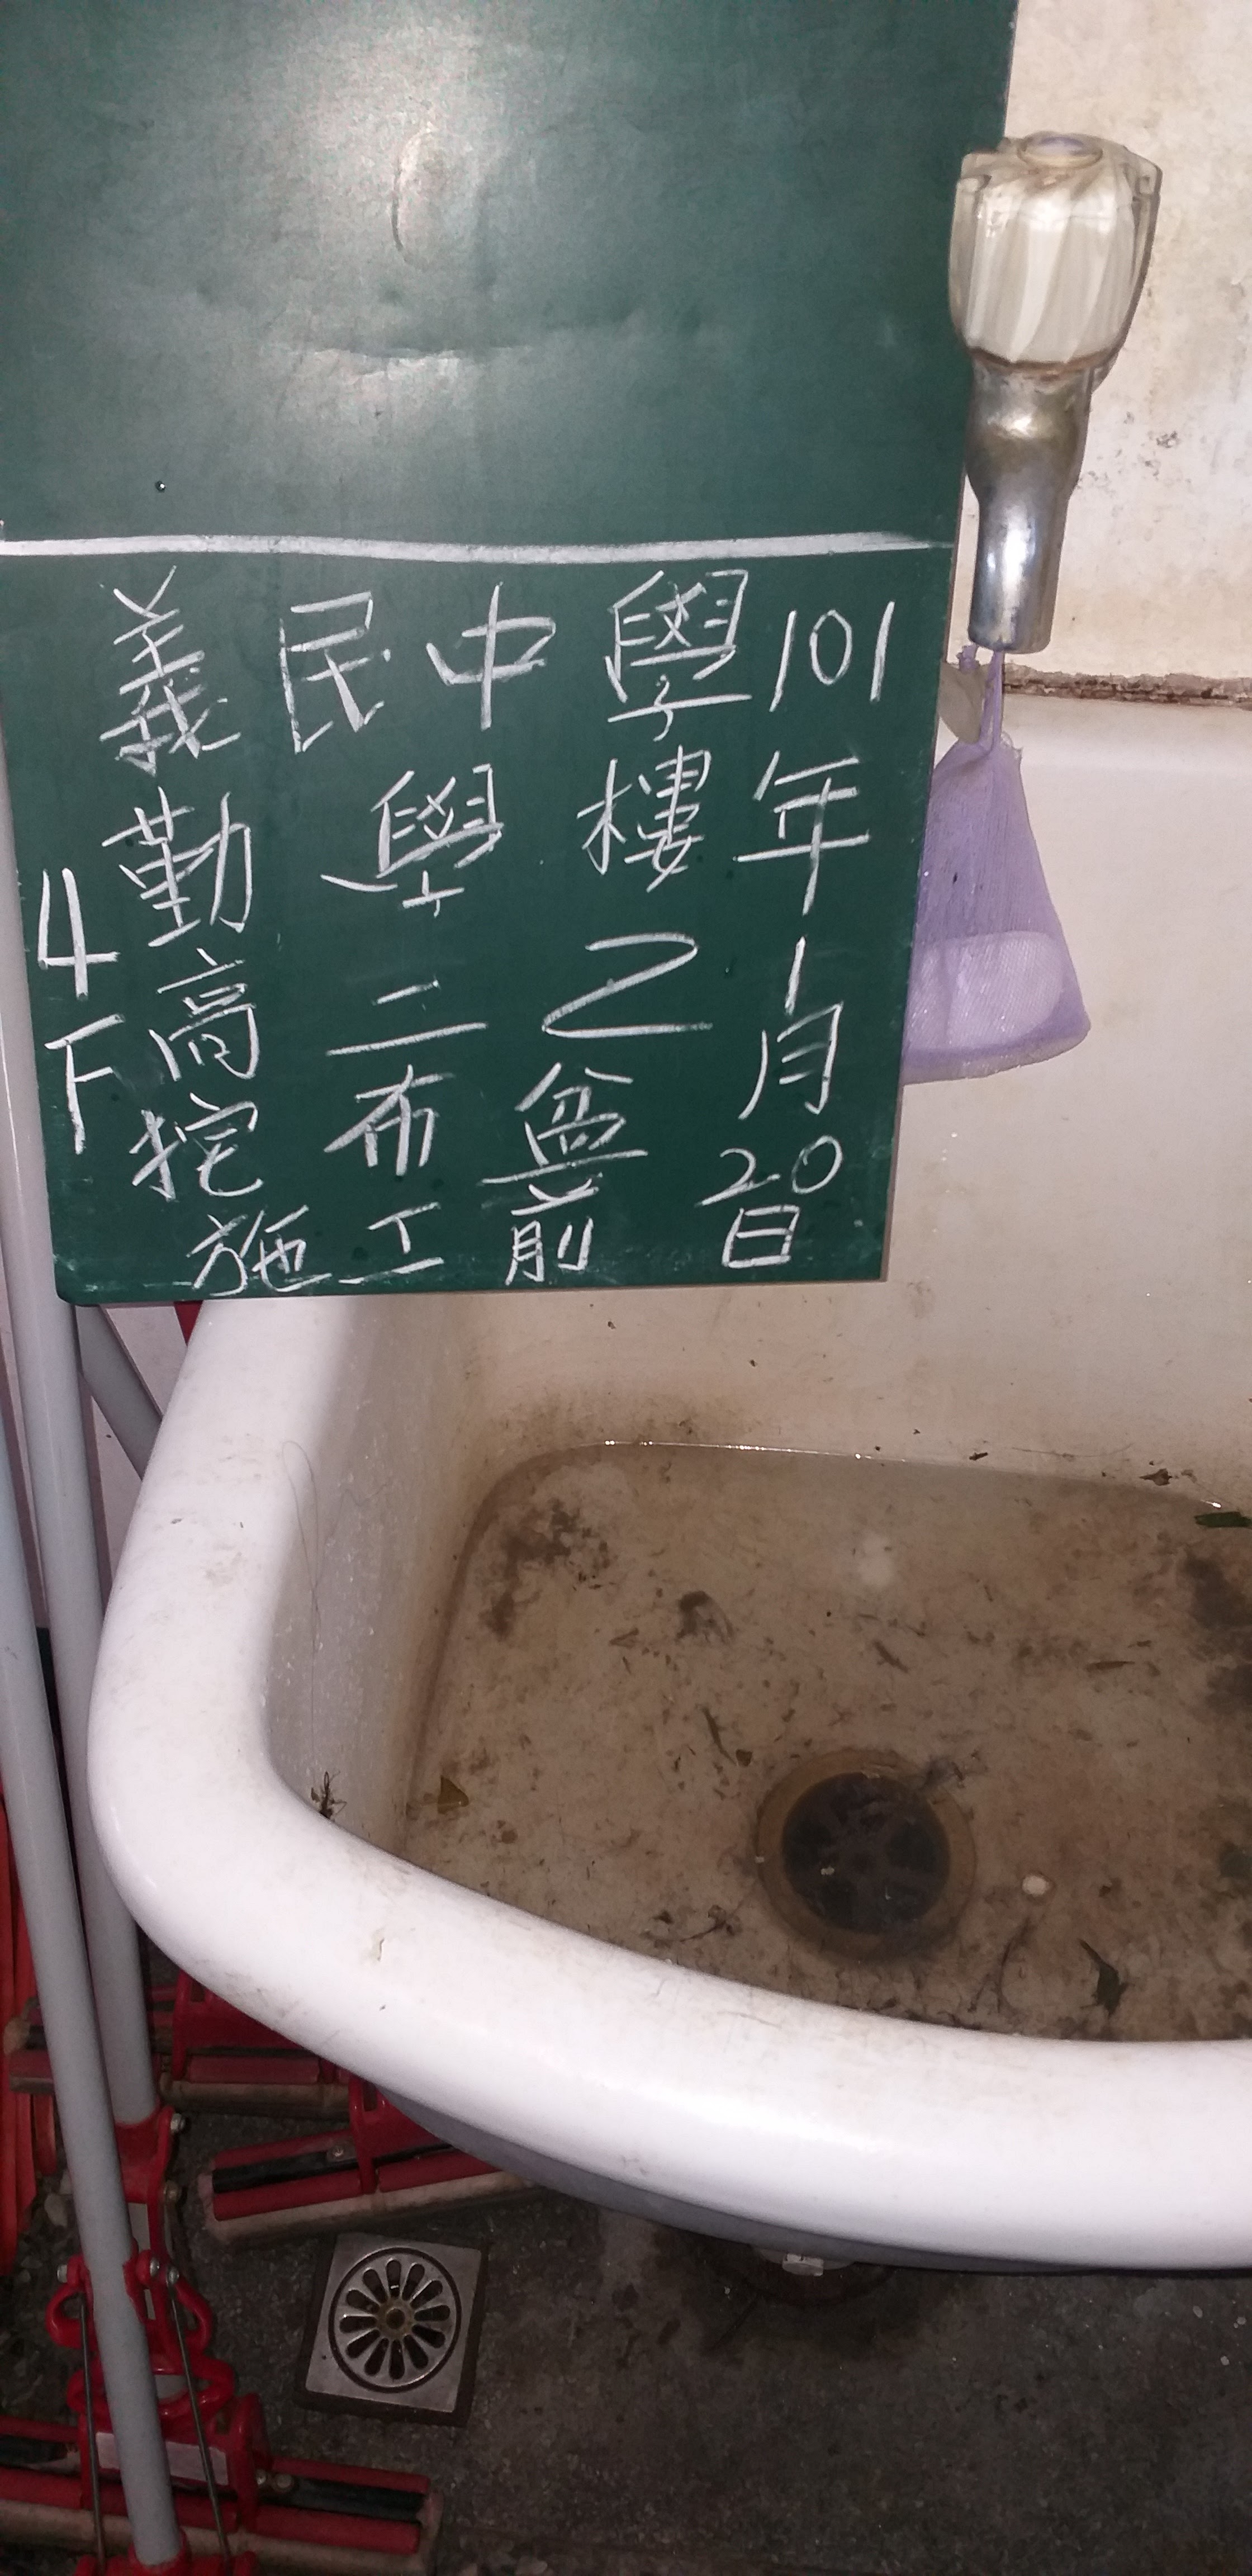 義民中學
勤學樓
4F
高二乙
拕布盆
施工前
101年1月20日